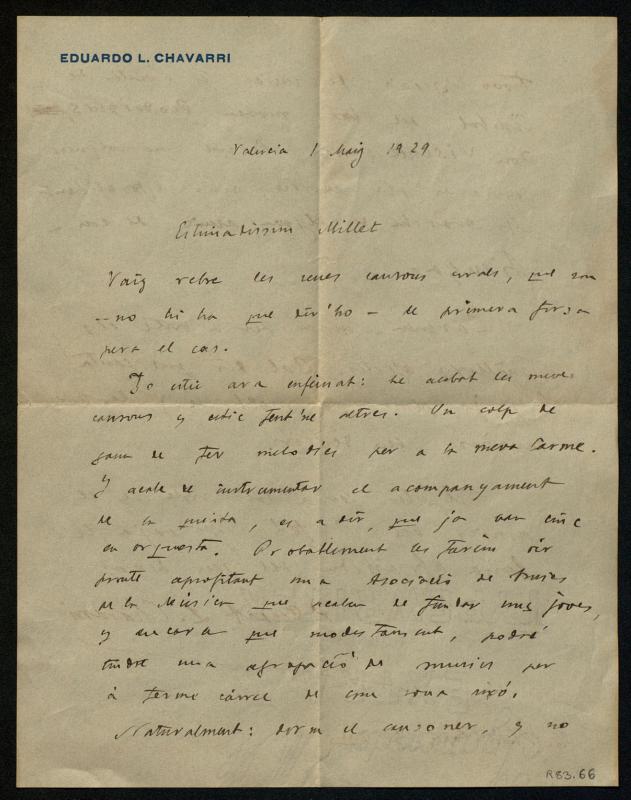 EDUARDO L. CHAVARRI
Valencia 1 Maig 1929
Estimadissim Millet
Vaig rebre les seues cansons corals, que son
— no hi ha que dir'ho — de primera forsa
pera el cas.
Jo estic ara enfeinat: he acabat les meues
cansons y estic fent'ne altres. Un colp de
gana de fer melodies per a la meva Carme.
Y acabe de instrumentar el acompanyament
de la, es a dir, que ja van cinc
en orquesta. Probablement les farém oir
pronte aprofitant una Asociació de Amics
de la Música que acaben de fundar uns joves,
y encara que modestament, podré
tindre una agrupació de musics per
á ferme cárrec de com sona aixó.
Naturalment: dorm el cansoner, y no
R83.66